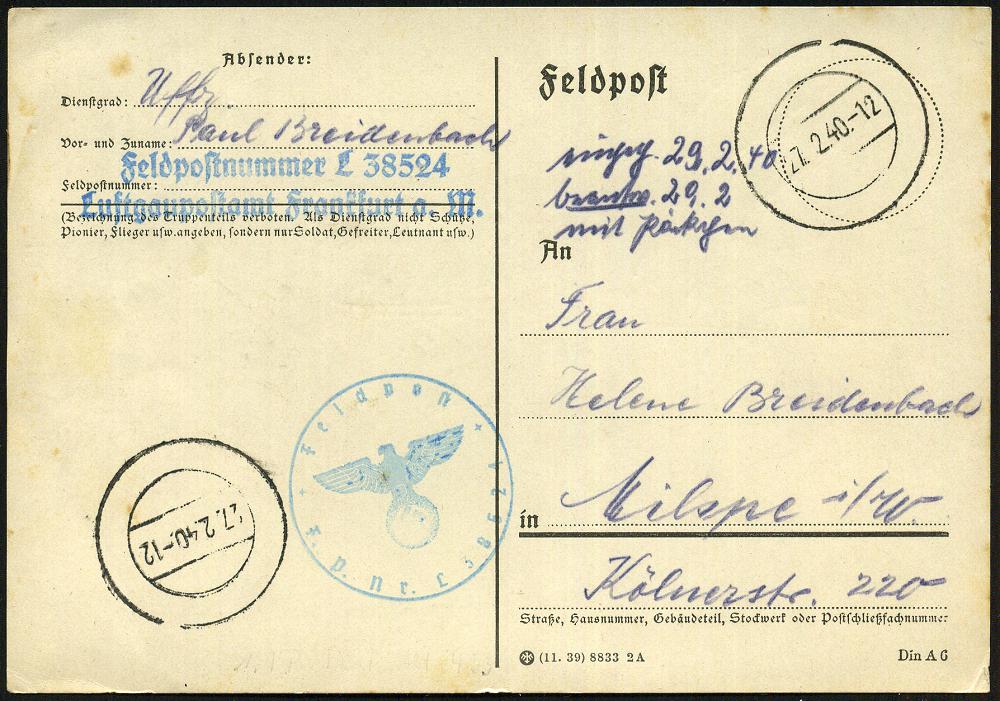 Absender:
Dienstgrad: Uffz.
Vor- und Zuname: Paul Breidenbach
Feldpostnummer L 38524
Feldpostnummer:
Luftgaupostamt Frankfurt a. M.
(Bezeichnung des Truppenteils verboten. Als Dienstgrad nicht Schütze,
Pionier, Flieger usw. angeben, sondern nur Soldat, Gefreiter, Leutnant usw.)
Feldpost
F. P. Nr. L 38524
27.2.40.-12
Feldpost
27.2.40.-12
eingeg. 29.2.40
beantw. 29.2
mit Päckchen
An
Frau
Helene Breidenbach
in Milspe i/W.
Kölnerstr. 220
Straße, Hausnummer, Gebäudeteil, Stockwerk oder Postschließfachnummer
(11. 39) 8833 2A
Din A 6